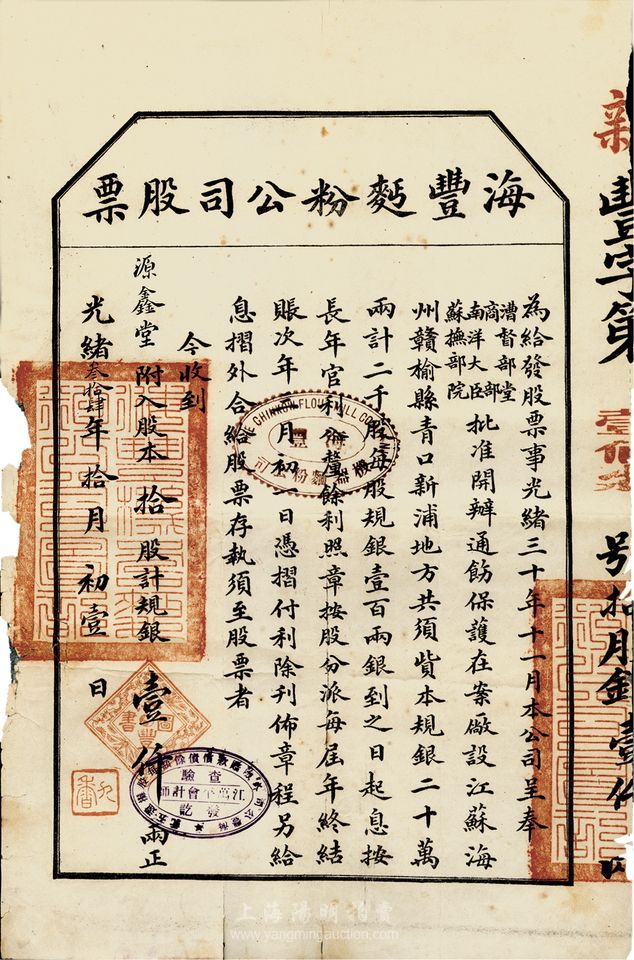 海豐麪粉公司股票
為給發股票事光緒三十年十一月本公司呈奉
漕督部堂
商部
南洋大臣
蘇撫部院
批准開辦通飭保護在案徽設江蘇海
州贛榆縣青口新浦地方共須貲本規銀二十萬
兩計二千股每股規銀壹百兩銀到之日起息按
長年官利釐餘利照章按股分派每屆年終結
賬次年月初日憑摺付利除刋佈章程另給
息摺外合給股票存執須至股票者
今收到
源鑫堂 附入股本拾股計規銀壹仟兩正
光緒叁拾肆年拾月初壹日
豐字第
號拾股銀壹仟
FLOUR MILL
查驗
江萬平會計師
發訖
上海陽明拍賣
www.yangmingauction.com